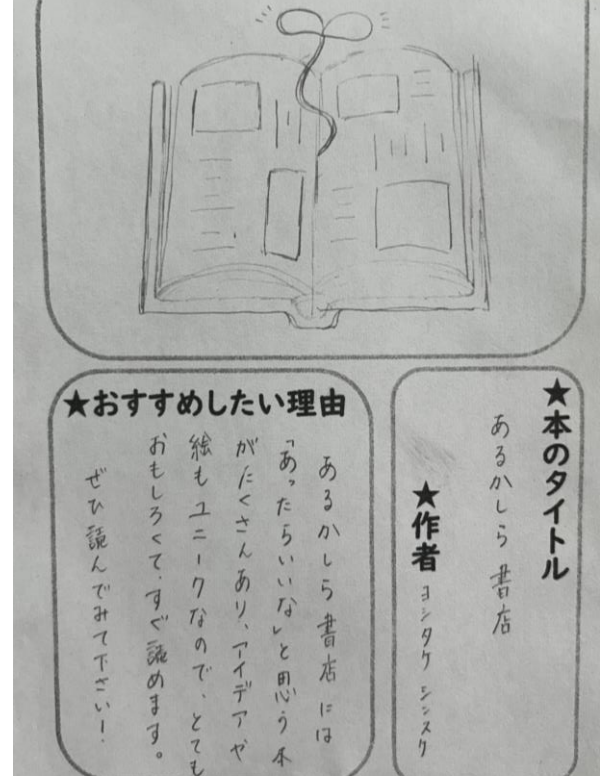 ★本のタイトル
あるかしら書店
★作者
ヨシタケ シンスケ
★おすすめしたい理由
あるかしら書店には
「あったらいいな」と思う本
がたくさんあり、アイデアや
絵もユニークなので、とても
おもしろくて、すぐ読めます。
ぜひ読んでみて下さい！